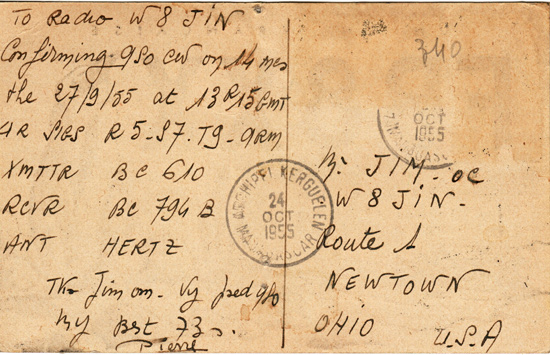 To Radio W 8 JIN
Confirming QSO CW on 14 mcs
the 27/9/55 at 13h15 GMT
UR SIGS R 5-S7-T9-QRM
XMTTR BC 610
RCVR BC 794 B
ANT HERTZ
Tks Jim om. Vy fred QSO
My Best 73s.
Pierre
340
OCT
1955
ARCHIPEL KERGUELEN
24
OCT
1955
MADAGASCAR
Mr JIM- oc
W 8 JIN-
Route 1
NEWTOWN
OHIO
U.S.A